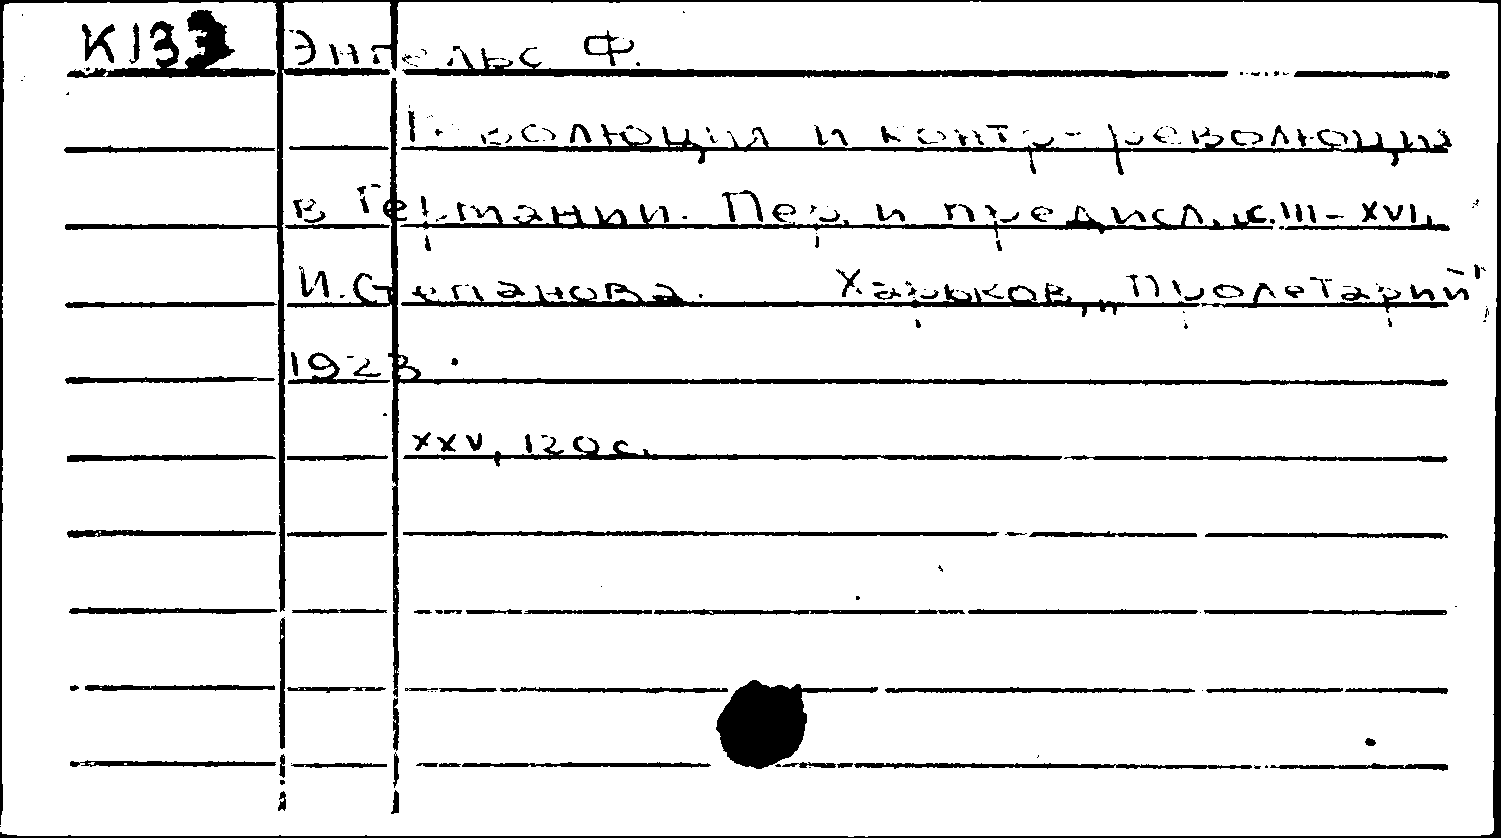 К133 Энгельс Ф.
Революция и контр-революция
в Германии. Пер. и предисл., с. III-XVI,
И. Степанова. Харьков, „Пролетарий",
1923.
XXV, 120 с.